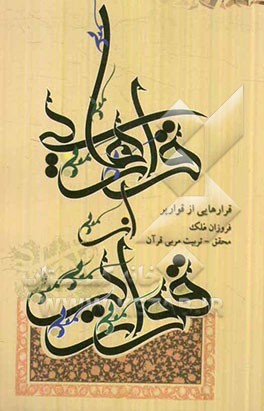 قرارهایی
از
قواریر
قرارهایی از قواریر
فروزان فلک
محقق - تربیت مربی قرآن